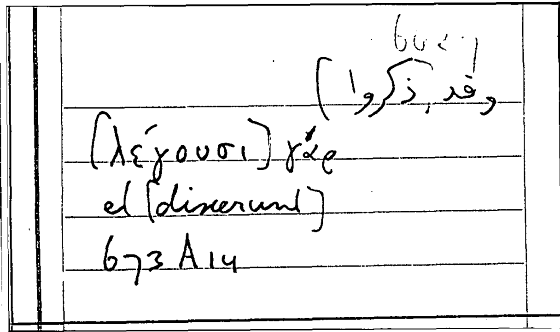 وقد ذكروا)
[λέγουσι] γὰρ
et [dixerunt]
673 A 14